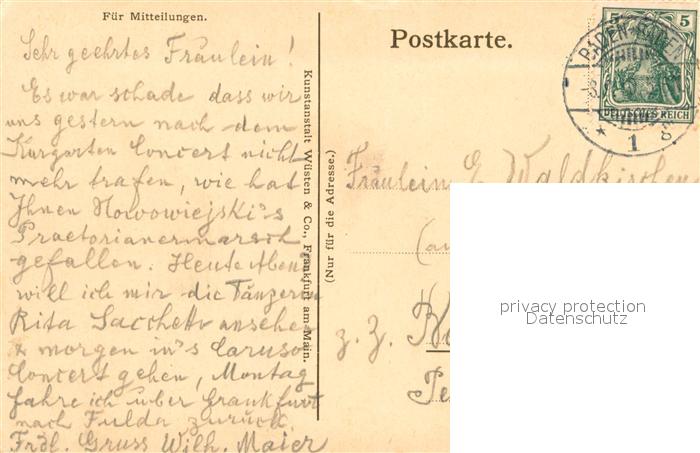 Für Mitteilungen.
Sehr geehrtes Fräulein!
Es war schade dass wir
uns gestern nach dem
Kurgarten Concert nicht
mehr trafen, wie hat
Ihnen Nowowiejski's
Praetorianermarsch
gefallen. Heute Aben
will ich mir die Tänzerin
Rita Sacchetto ansehe
& morgen in's Caruso
Concert gehen, Montag
fahre ich über Frankfurt
nach Fulda zurück.
Frdl. Gruss Wilh. Maier
Kunstanstalt Wüsten & Co., Frankfurt am Main.
(Nur für die Adresse.)
Postkarte.
5 5
DEUTSCHES REICH
BADEN-BADEN
* 1
Fräulein E. Waldkirchen
z. Z.
privacy protection
Datenschutz